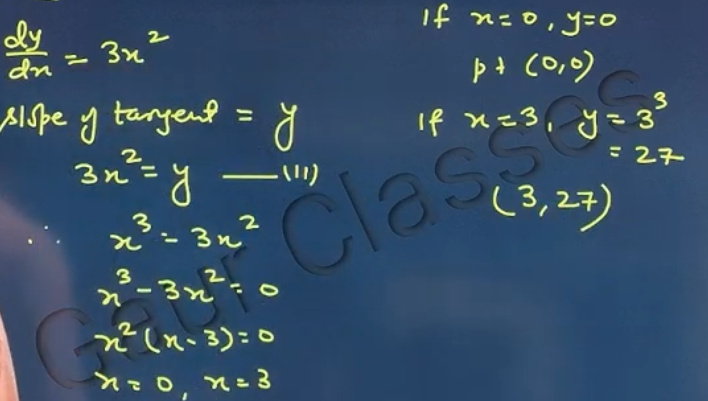 dy/dx = 3x²
slope of tangent = y
3x² = y —(11)
∴ x³ = 3x²
x³ - 3x² = 0
x² (x - 3) = 0
x = 0, x = 3
If x = 0, y = 0
pt (0,0)
If x = 3, y = 3³
= 27
(3, 27)
Gaur Classes